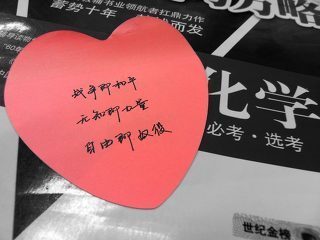 书业领航者扛鼎力作
蓄势十年 而发
战争即和平
无知即力量
自由即奴役
化学
必考·选考
世纪金榜